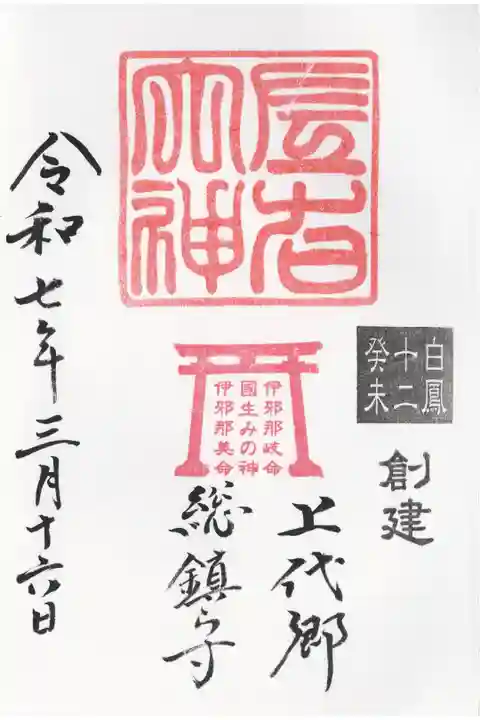 大神
白鳳
十二
癸未
創建
伊邪那岐命
國生みの神
伊邪那美命
上代郷
総鎮守
令和七年三月十六日